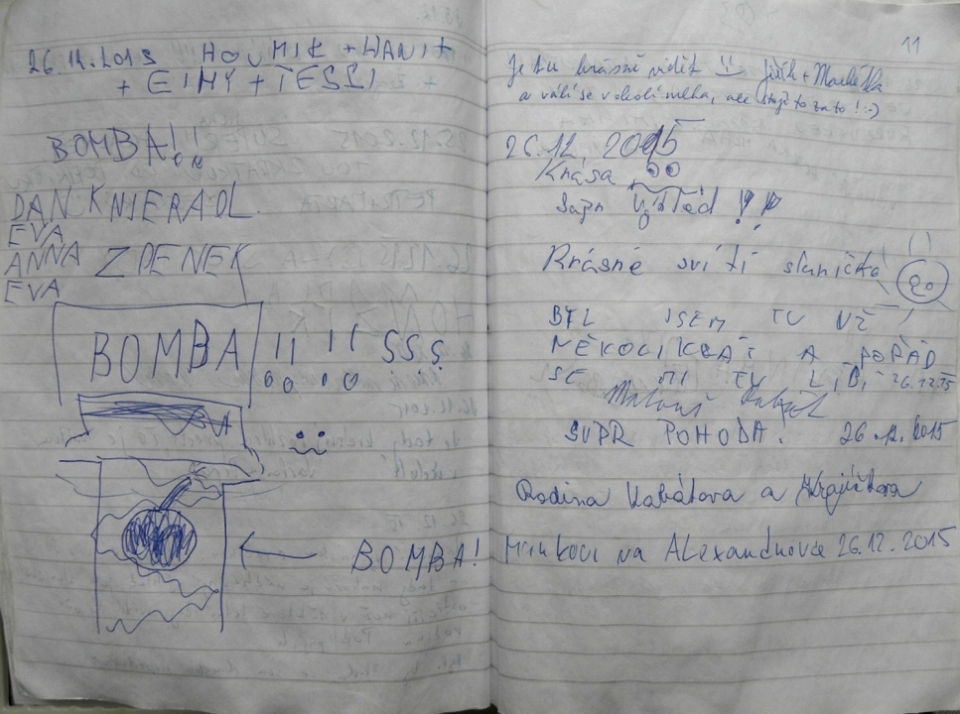 26.12.2013 HOUMIK + WANIT
+ EIMY + TESSI
BOMBA!!
DAN KNIERADL.
EVA
ANNA ZDENEK
EVA
BOMBA !! !! S S S
BOMBA!
11
Je tu krásně vidět Jiřík + Markétka
a válí se v okolí mlha, ale stojí to za to! :-)
26.12. 2015
Krása
Supr Výhled !!
Krásně svítí sluníčko
BYL JSEM TU UŽ
NĚKOLIKRÁT A POŘÁD
SE MI TU LÍBÍ 26.12.15
SUPR POHODA! 26.12.2015
Rodina Kabátova a
na Alexandrovce 26.12.2015